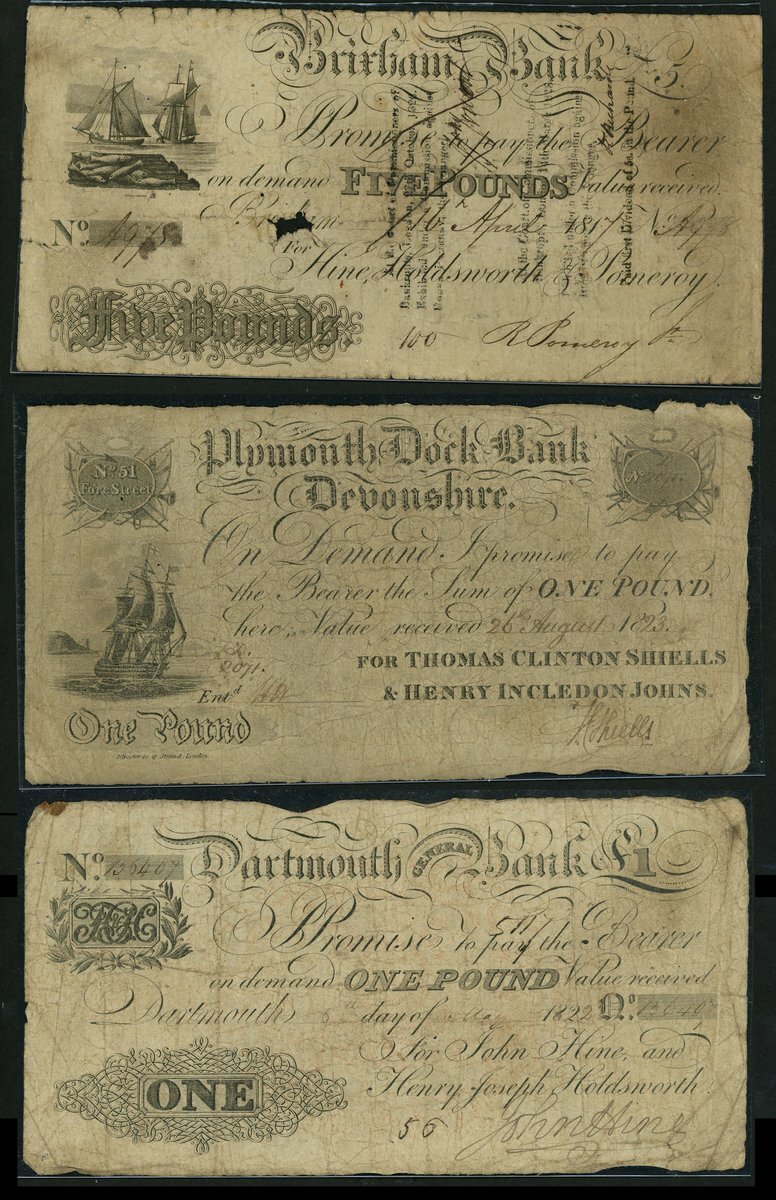 Brixham Bank £5
I Promise to pay the Bearer
on demand FIVE POUNDS Value received
Brixham 16th April 1817 No A978
No A978
For
Hine, Holdsworth & Pomeroy.
Five Pounds.
100 R Pomeroy
Plymouth Dock Bank
Devonshire.
No. 51
Fore Street
On Demand I promise to pay
the Bearer the Sum of ONE POUND,
here, Value received 26th August 1823.
FOR THOMAS CLINTON SHIELLS
& HENRY INCLEDON JOHNS.
Entd
One Pound
Shiells
No. 136407 Dartmouth GENERAL Bank £1
I Promise to pay the Bearer
on demand ONE POUND Value received
Dartmouth 6th day of May 1822 No. 136407
For John Hine, and
Henry Joseph Holdsworth.
ONE
56 John Hine